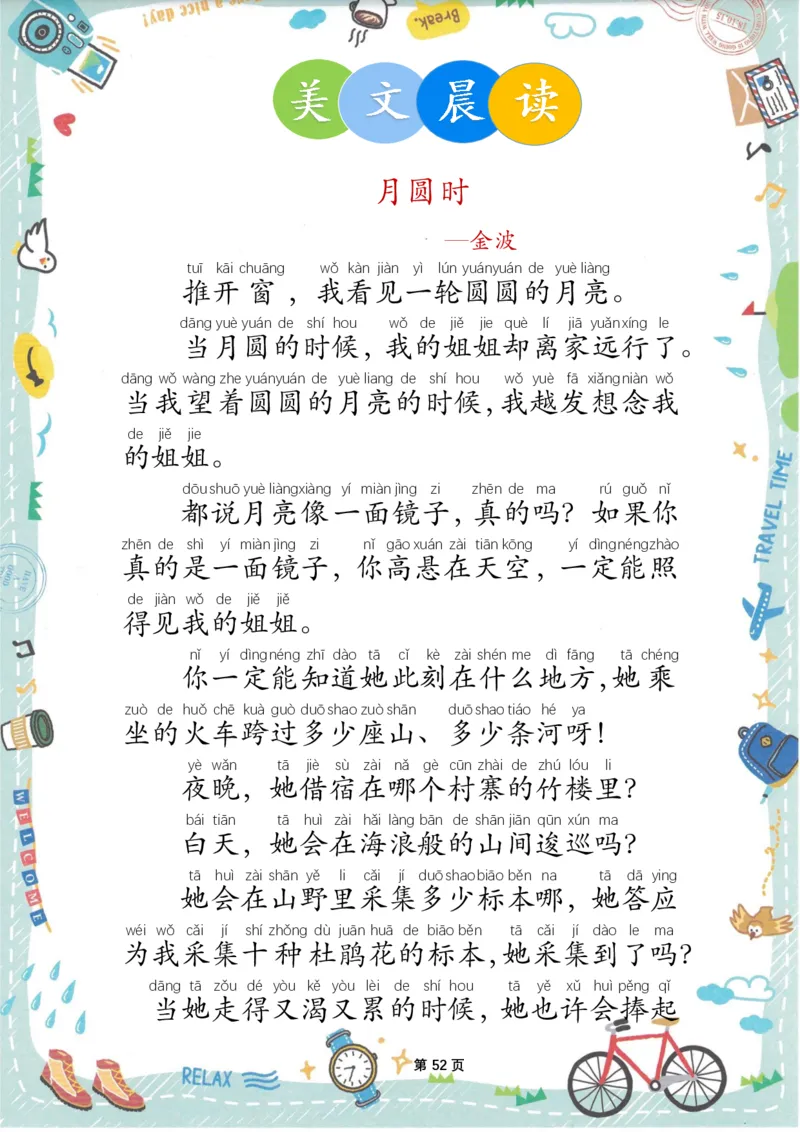 Have a nice day!
Break.
美文晨读
月圆时
—金波
tuī kāi chuāng wǒ kàn jiàn yì lún yuányuán de yuè liàng
推开窗，我看见一轮圆圆的月亮。
dāng yuè yuán de shí hou wǒ de jiě jie què lí jiā yuǎnxíng le
当月圆的时候，我的姐姐却离家远行了。
dāng wǒ wàng zhe yuányuán de yuè liang de shí hou wǒ yuè fā xiǎngniàn wǒ
当我望着圆圆的月亮的时候，我越发想念我
de jiě jie
的姐姐。
dōu shuō yuè liàngxiàng yí miàn jìng zi zhēn de ma rú guǒ nǐ
都说月亮像一面镜子，真的吗？如果你
zhēn de shì yí miàn jìng zi nǐ gāo xuán zài tiān kōng yí dìngnéngzhào
真的是一面镜子，你高悬在天空，一定能照
de jiàn wǒ de jiě jiě
得见我的姐姐。
nǐ yí dìngnéng zhī dào tā cǐ kè zài shén me dì fāng tā chéng
你一定能知道她此刻在什么地方，她乘
zuò de huǒ chē kuà guò duō shao zuò shān duō shao tiáo hé ya
坐的火车跨过多少座山、多少条河呀！
yè wǎn tā jiè sù zài nǎ gè cūn zhài de zhú lóu li
夜晚，她借宿在哪个村寨的竹楼里？
bái tiān tā huì zài hǎi làng bān de shān jiān qūn xún ma
白天，她会在海浪般的山间逡巡吗？
tā huì zài shān yě li cǎi jí duō shao biāo běn na tā dā ying
她会在山野里采集多少标本哪，她答应
wéi wǒ cǎi jí shí zhǒng dù juān huā de biāo běn tā cǎi jí dào le ma
为我采集十种杜鹃花的标本，她采集到了吗？
dāng tā zǒu dé yòu kě yòu lèi de shí hou tā yě xǔ huì pěng qǐ
当她走得又渴又累的时候，她也许会捧起
TRAVEL TIME
WELCOME
RELAX
第 52 页